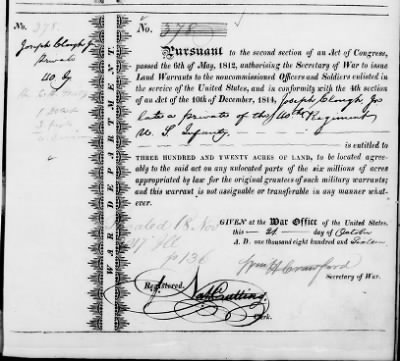 No. 378.
Joseph Clough Jr
Private
40 Inf
No. 378
Pursuant to the second section of an Act of Congress,
passed the 6th of May, 1812, authorising the Secretary of War to issue
Land Warrants to the noncommissioned Officers and Soldiers enlisted in
the service of the United States, and in conformity with the 4th section
of an Act of the 10th of December, 1814, Joseph Clough Jr
late a private of the 40th Regiment
U. S. Infantry.
is entitled to
THREE HUNDRED AND TWENTY ACRES OF LAND, to be located agreeably
to the said act on any unlocated parts of the six millions of acres
appropriated by law for the original grantees of such military warrants; and
this warrant is not assignable or transferable in any manner what-
ever.
WAR DEPARTMENT.
Located 18. Nov
1817 Ill
p 136
GIVEN at the War Office of the United States.
this 24 day of October
A. D. one thousand eight hundred and Sixteen
Wm H Crawford
Secretary of War.
Registered.
Nath Cutting
Clerk.